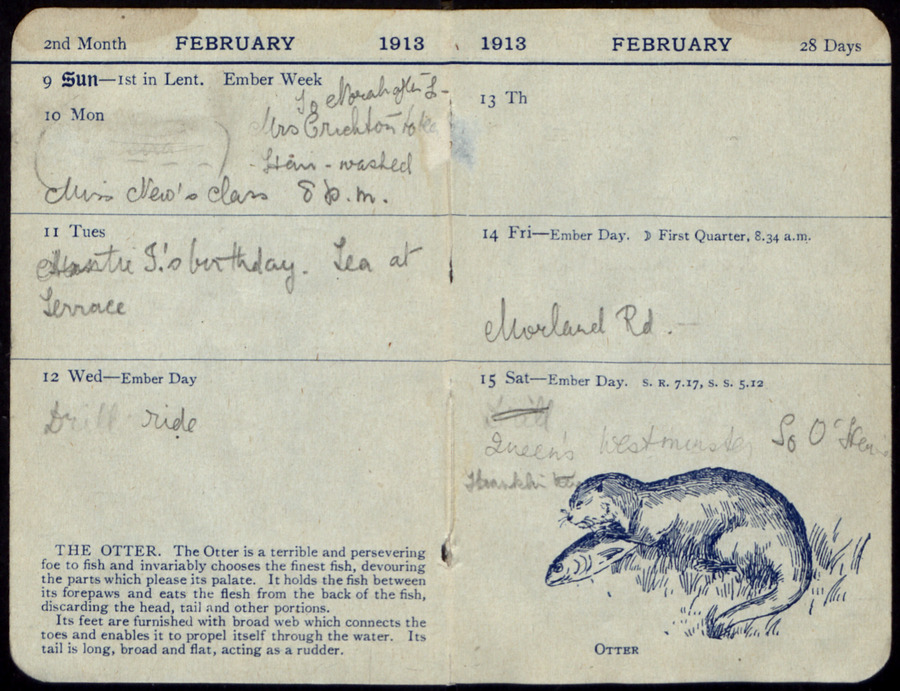 2nd Month FEBRUARY 1913
9 Sun—1st in Lent. Ember Week
To Norah
10 Mon
Mrs Crichton to
washed
Miss New's class 8 p.m.
11 Tues
Auntie J.'s birthday. Tea at
Terrace
12 Wed—Ember Day
Drill ride
THE OTTER. The Otter is a terrible and persevering
foe to fish and invariably chooses the finest fish, devouring
the parts which please its palate. It holds the fish between
its forepaws and eats the flesh from the back of the fish,
discarding the head, tail and other portions.
Its feet are furnished with broad web which connects the
toes and enables it to propel itself through the water. Its
tail is long, broad and flat, acting as a rudder.
1913 FEBRUARY 28 Days
13 Th
14 Fri—Ember Day. ☽ First Quarter, 8.34 a.m.
Morland Rd.
15 Sat—Ember Day. S. R. 7.17, S. S. 5.12
Drill
Queen's Westminster
OTTER